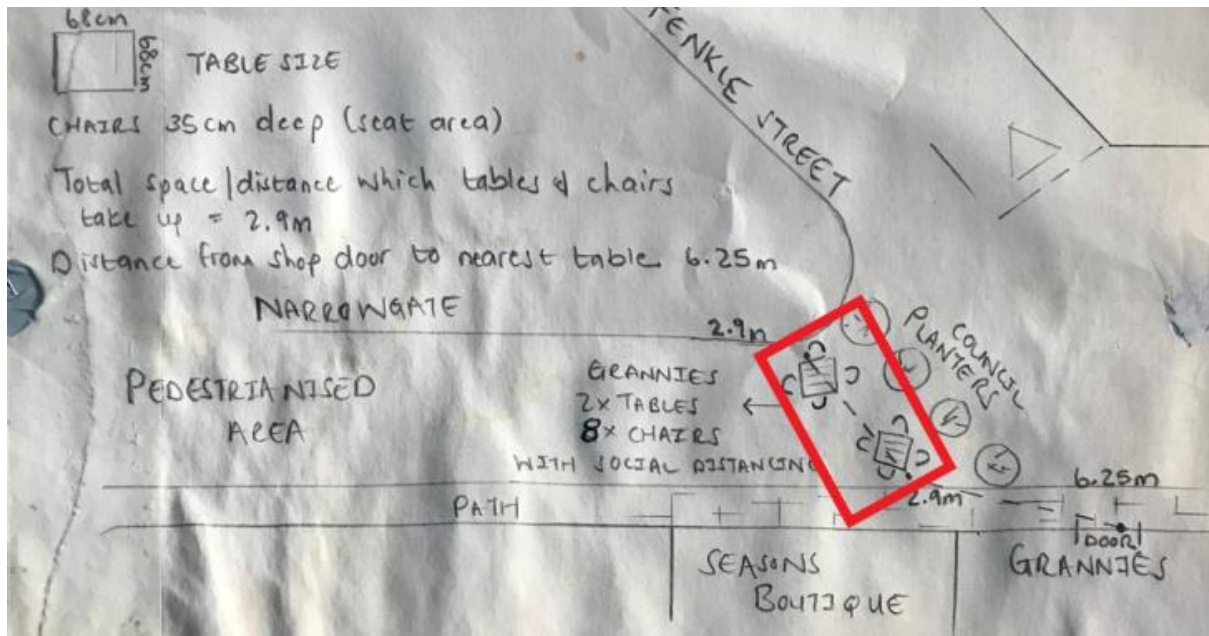 68cm
68cm
TABLE SIZE
CHAIRS 35cm deep (seat area)
Total space/distance which tables & chairs
take up = 2.9m
Distance from shop door to nearest table 6.25m
FENKLE STREET
NARROWGATE
2.9m
COUNCIL
PLANTERS
PEDESTRIANISED
AREA
GRANNIES
2x TABLES
8x CHAIRS
WITH SOCIAL DISTANCING
2.9m
6.25m
PATH
DOOR
SEASONS
BOUTIQUE
GRANNIES